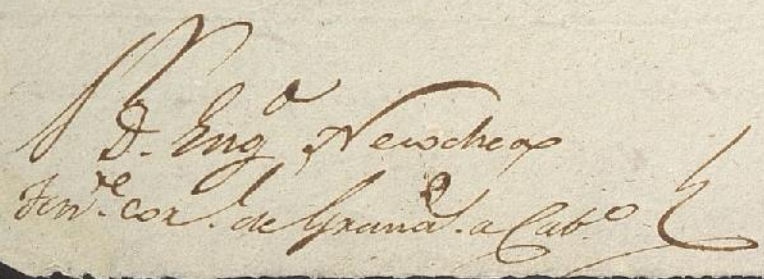 Sr. D. Engo Newcheos
Tente. cor.l de Granads. a Cabo